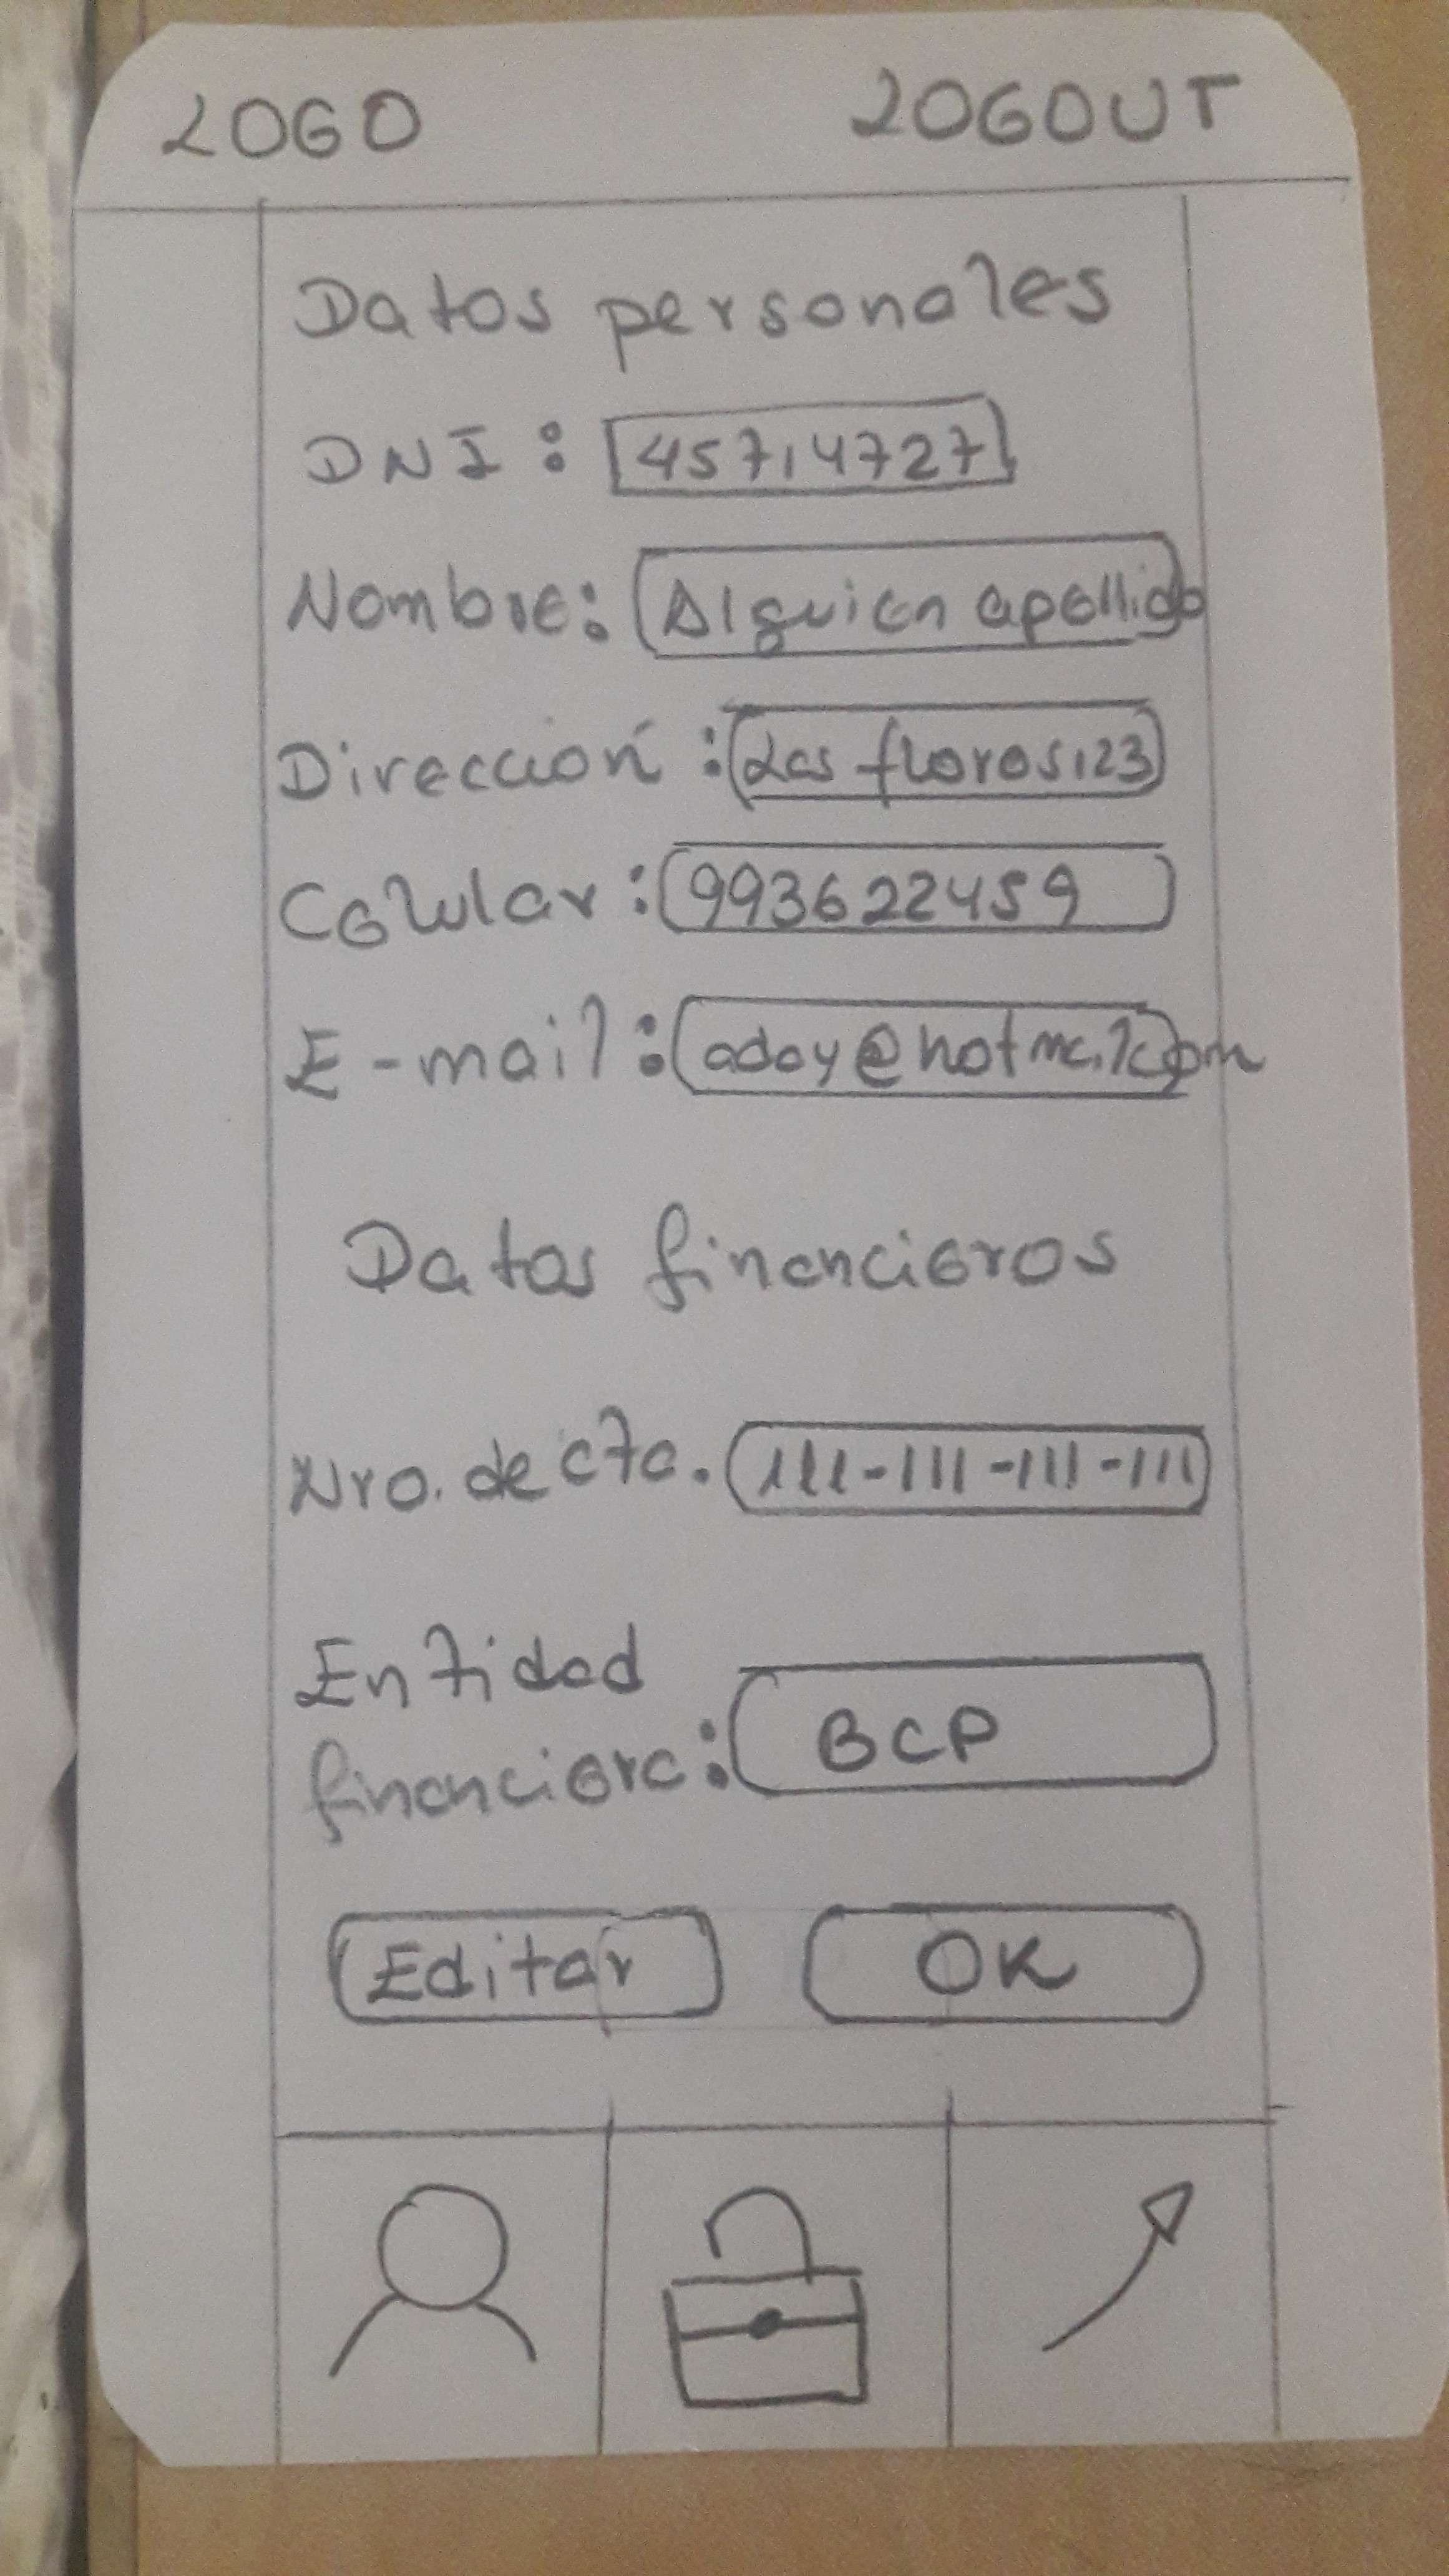 LOGO LOGOUT
Datos personales
DNI: 45714727
Nombre: Alguien apellido
Dirección: Las flores 123
Celular: 993622459
E-mail: aday@hotmail.com
Datos financieros
Nro. de cta. 111-111-111-111
Entidad
financiera: BCP
Editar OK